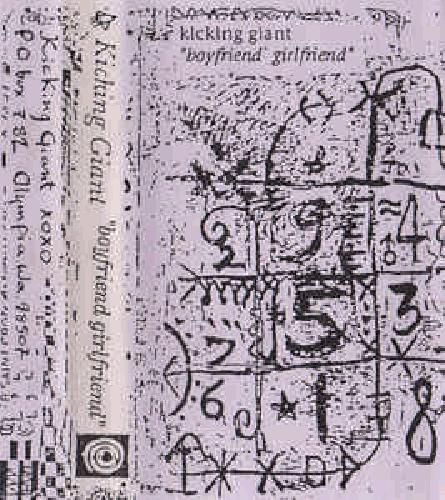 Kicking Giant xoxo
PO box 782 Olympia, Wa 98507
Kicking Giant "boyfriend girlfriend"
kicking giant
"boyfriend girlfriend"
2 9 4
7 5 3
6 1 8